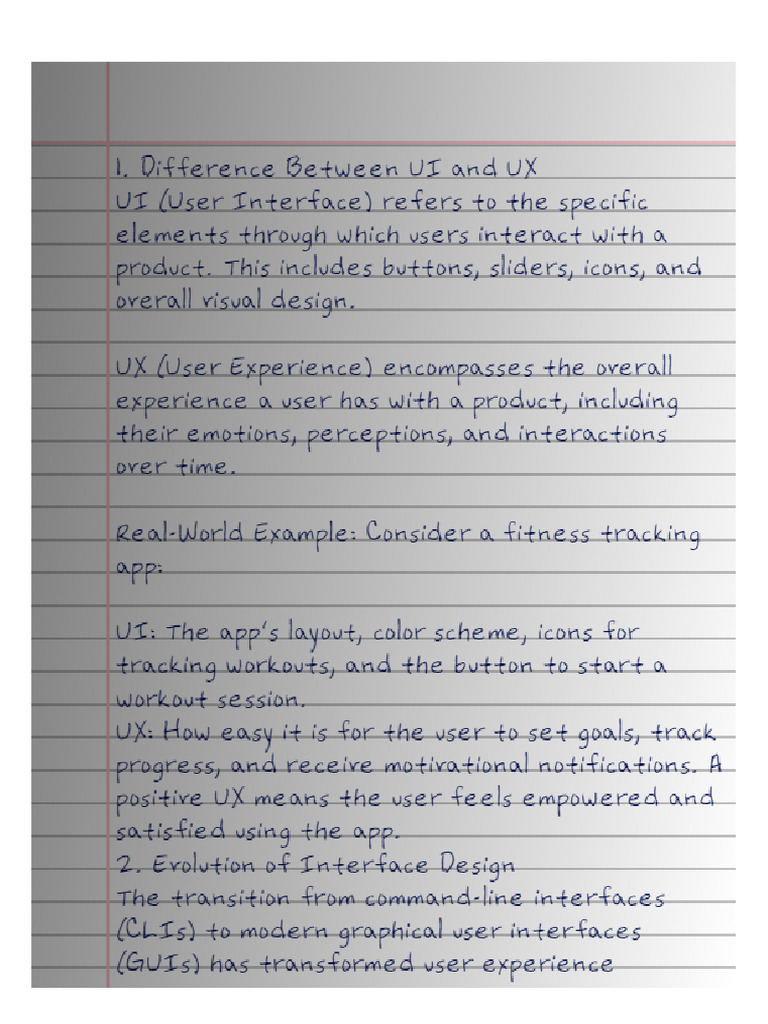 1. Difference Between UI and UX
UI (User Interface) refers to the specific
elements through which users interact with a
product. This includes buttons, sliders, icons, and
overall visual design.
UX (User Experience) encompasses the overall
experience a user has with a product, including
their emotions, perceptions, and interactions
over time.
Real-World Example: Consider a fitness tracking
app:
UI: The app's layout, color scheme, icons for
tracking workouts, and the button to start a
workout session.
UX: How easy it is for the user to set goals, track
progress, and receive motivational notifications. A
positive UX means the user feels empowered and
satisfied using the app.
2. Evolution of Interface Design
The transition from command-line interfaces
(CLIs) to modern graphical user interfaces
(GUIs) has transformed user experience